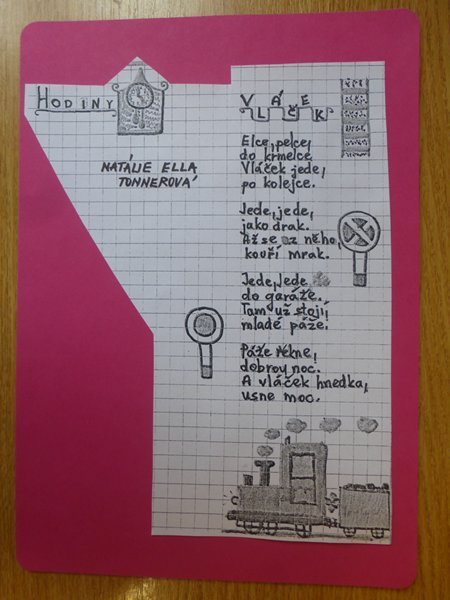 HODINY
NATÁLIE ELLA
TONNEROVÁ
VLÁČEK
Elce, pelce,
do krmelce.
Vláček jede,
po kolejce.
Jede, jede,
jako drak.
Až se z něho,
kouří mrak.
Jede, jede
do garáže.
Tam už stojí,
mladé páže.
Páže řekne,
dobrou noc.
A vláček hnedka,
usne moc.